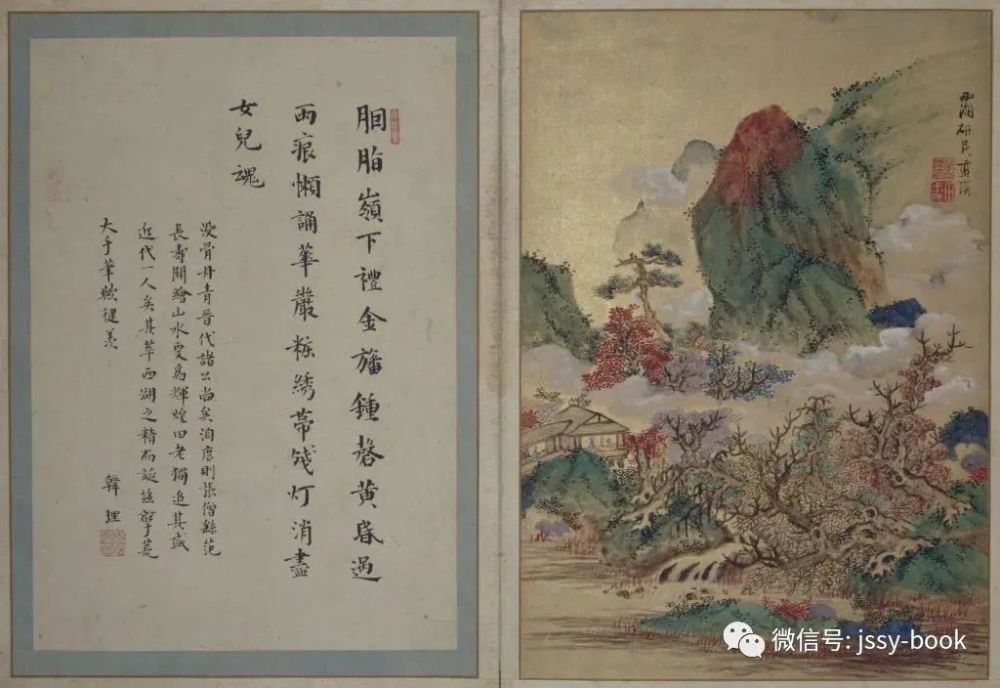 胭脂嶺下禮金旛鍾磬黃昏過
雨痕懶誦華嚴粧綉帶残灯消盡
女兒魂
沒骨丹青晉代諸公尚矣洎唐則張僧繇范
長壽開繪山水更為輝煌田老獨追其盛
近代一人矣其萃西湖之精而誕茲擘蓋
大手筆歟健羨
韓理
西湖研民藍瑛
微信号: jssy-book